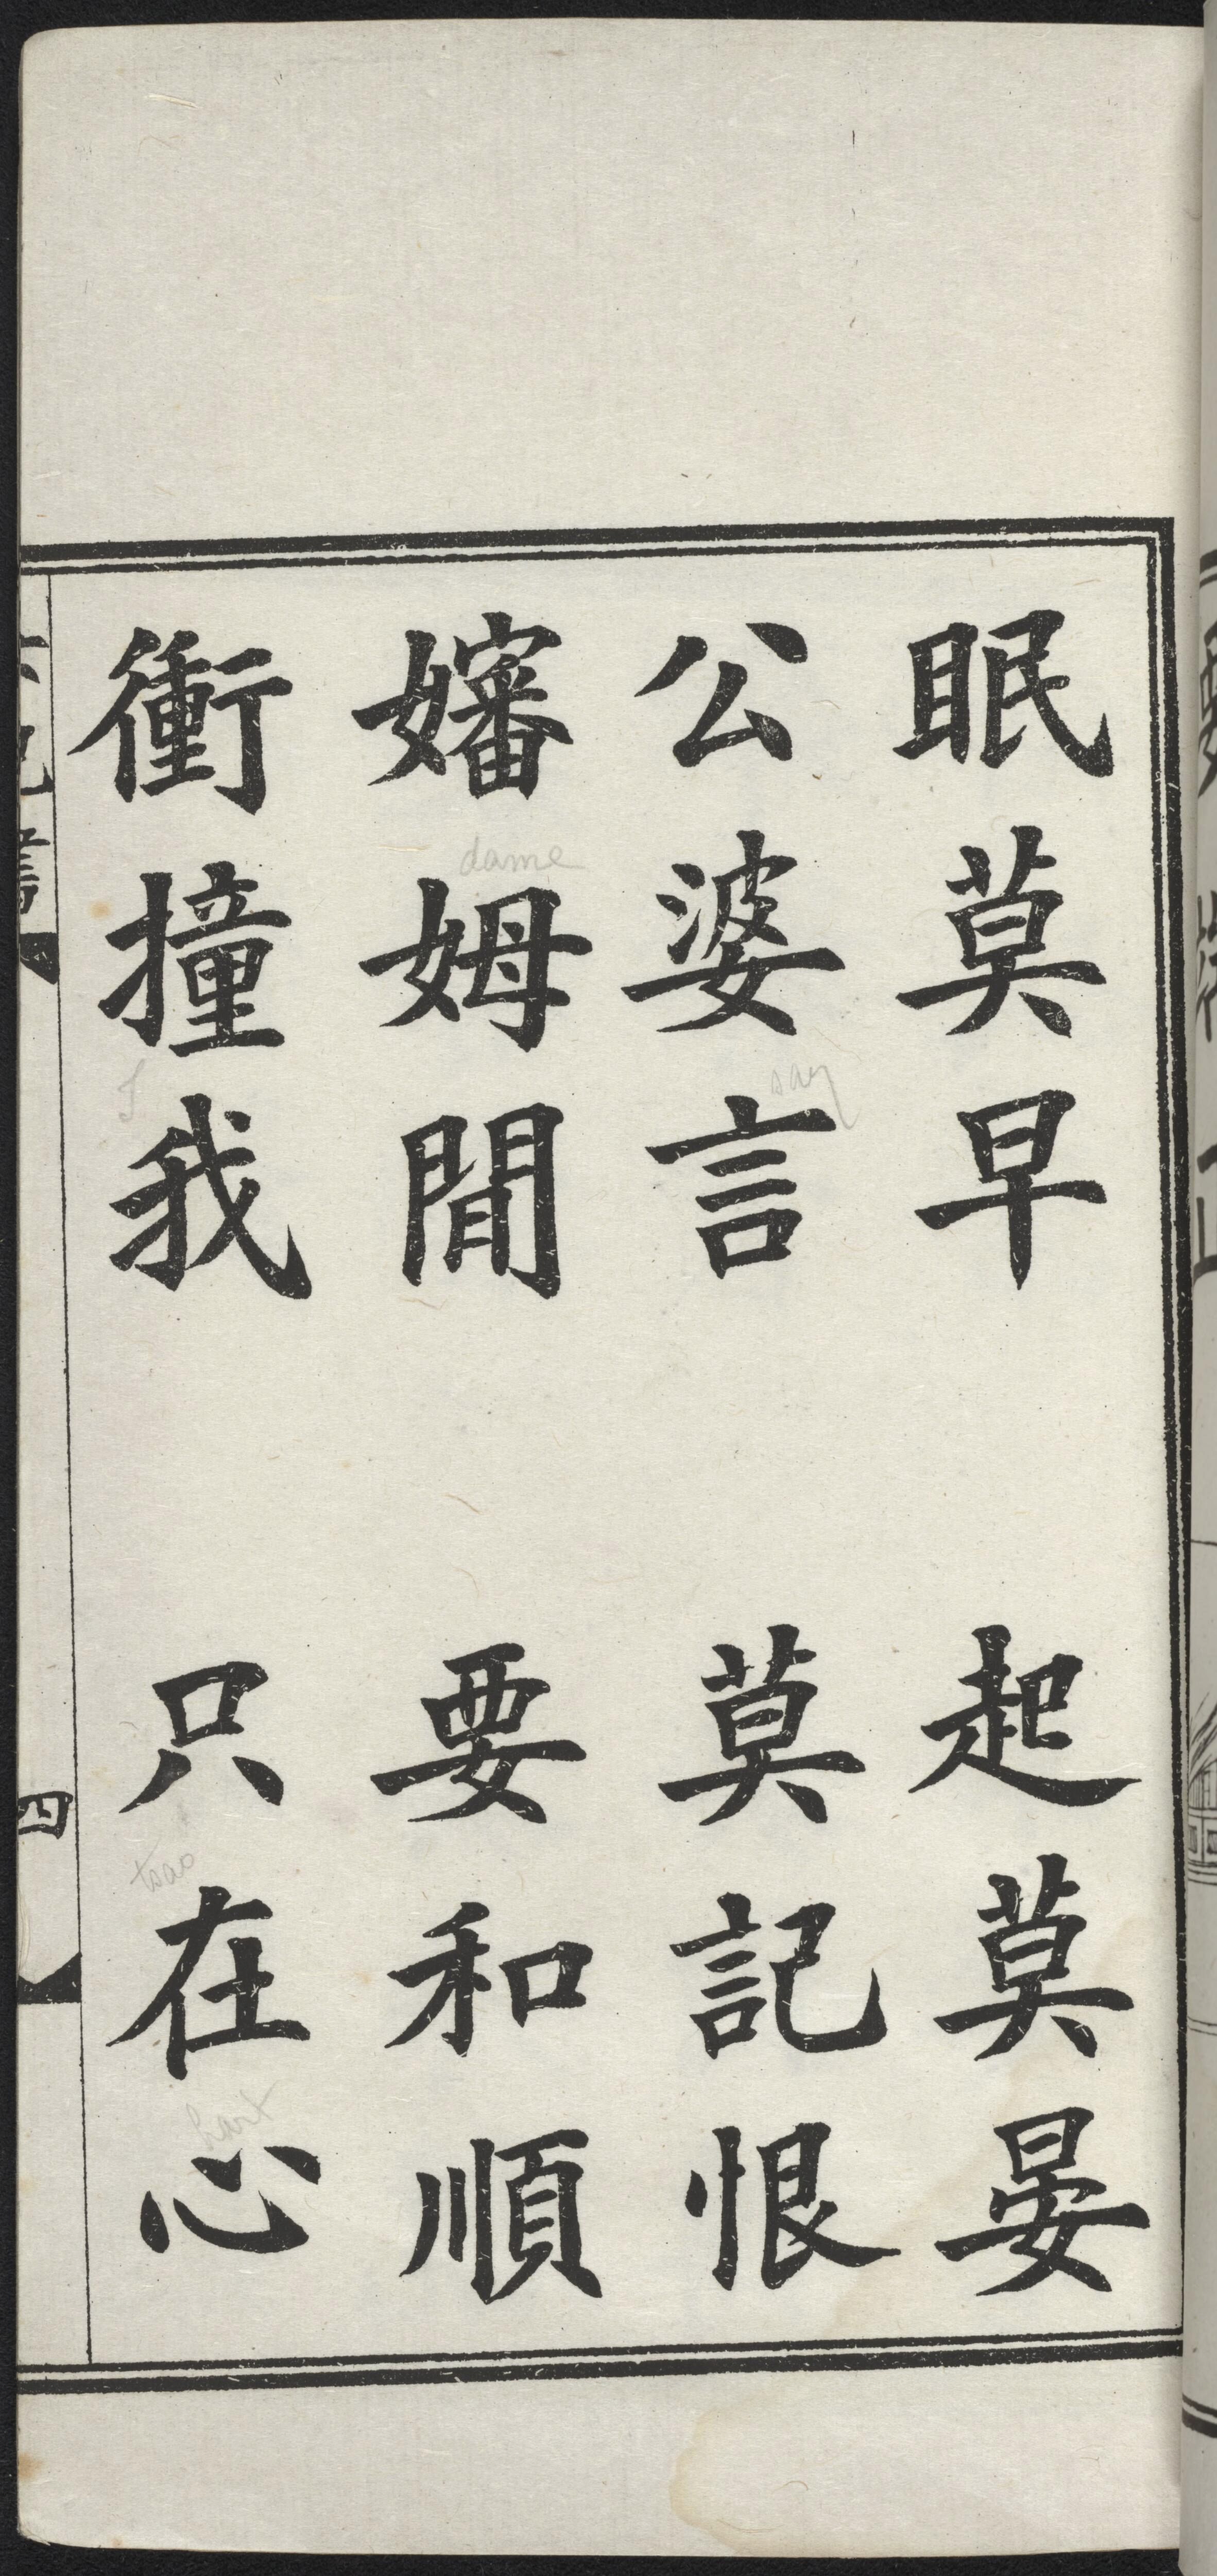 眠莫早　起莫晏
公婆言　莫記恨
嬸姆閒　要和順
衝撞我　只在心
四
dame
say
I
tsao